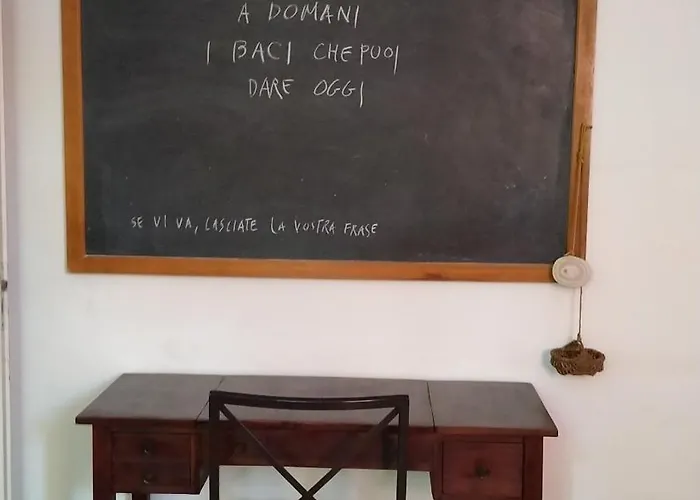 A DOMANI
I BACI CHE PUOI
DARE OGGI
SE VI VA, LASCIATE LA VOSTRA FRASE